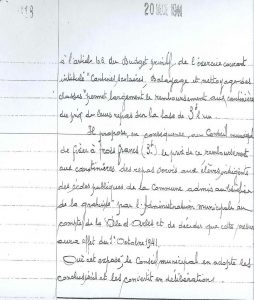 118
20 1941
à l'article du Budget primitif de l'exercice courant
intitulé "Cantines scolaires, Balayage et nettoyage des
classes" permet largement le remboursement aux cantinières
du prix de leurs repas sur la base de 3f l'un
Il propose, en conséquence, au Conseil municipal
de fixer à trois francs (3f) le prix de ce remboursement
aux cantinières des repas servis aux élèves
des écoles publiques de la Commune admis au bénéfice
de la gratuité par l'Administration municipale au
compte de la Ville et de décider que cette mesure
aura effet du 1er Octobre 1941.
Ouï cet exposé, le Conseil municipal en adopte les
conclusions et les convertit en délibération.